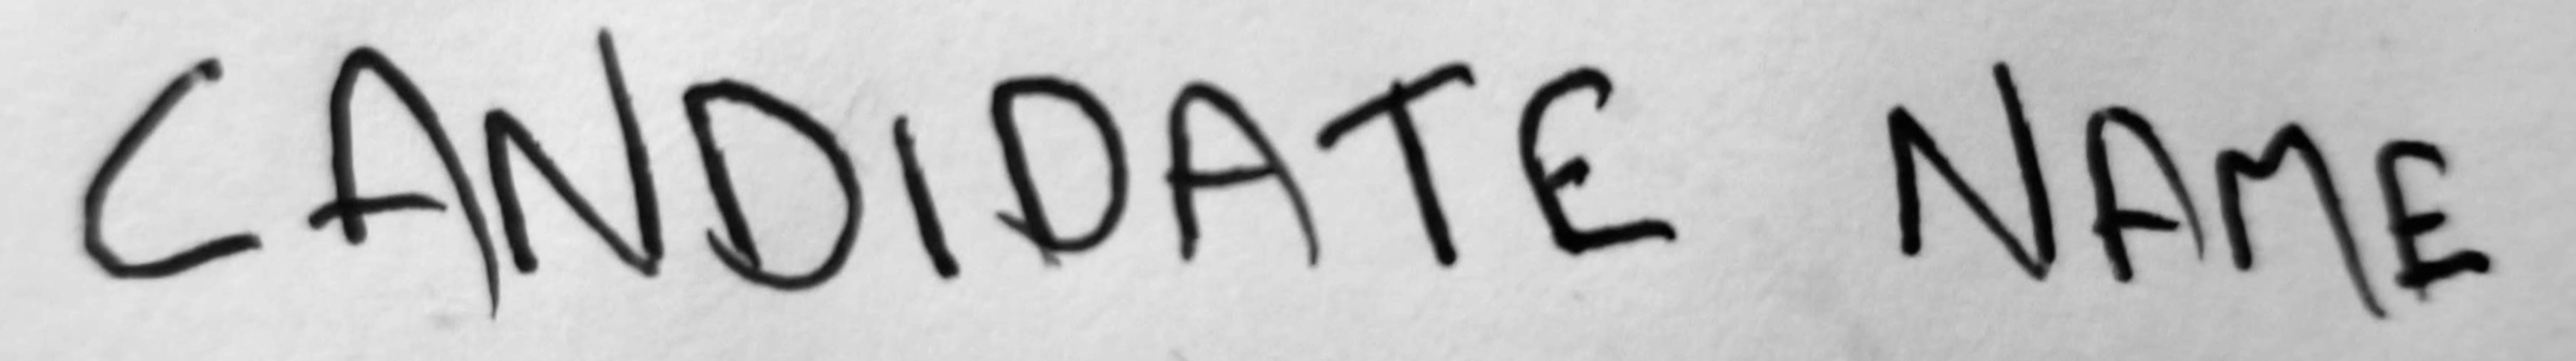 CANDIDATE NAME